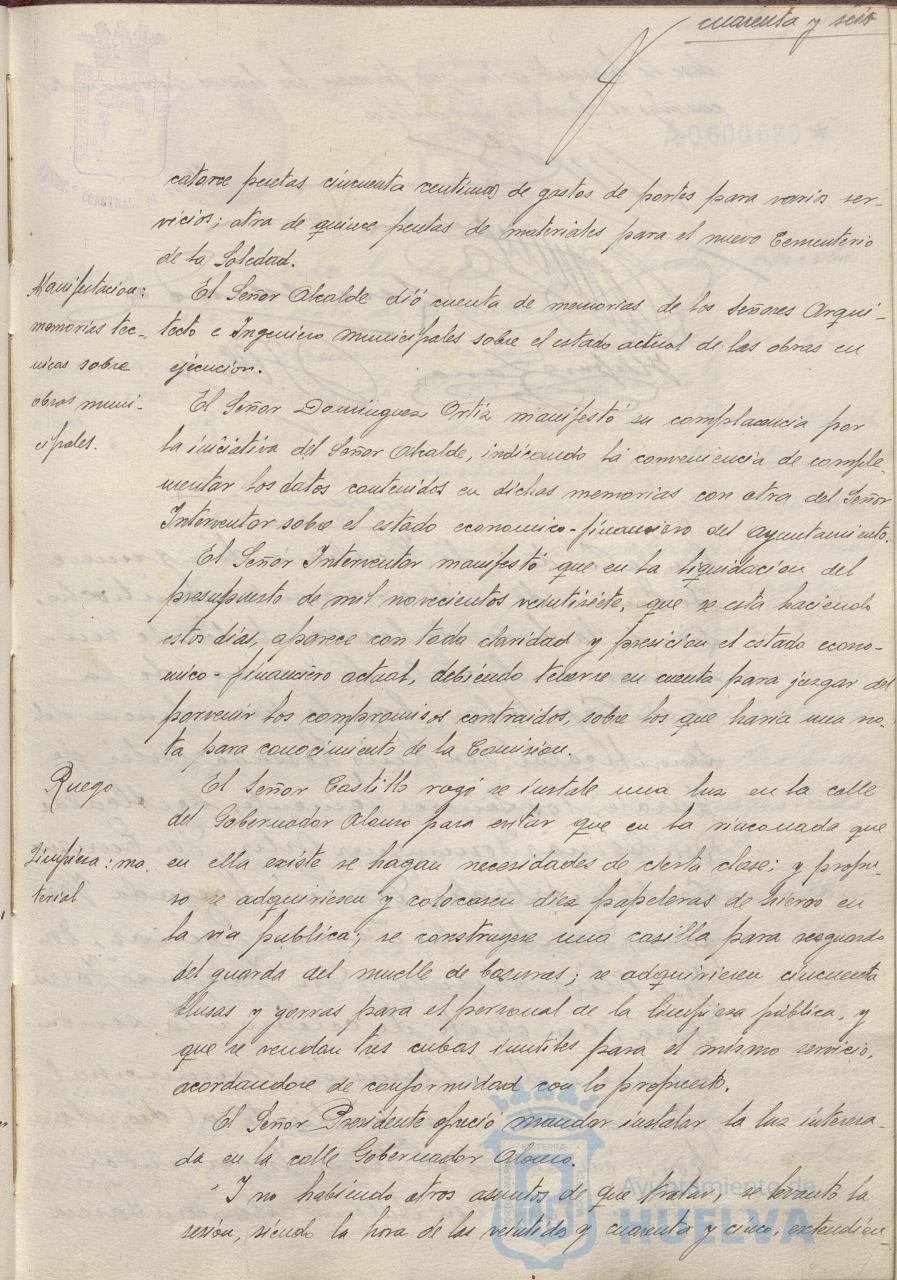 cuarenta y seis
catorce pesetas cincuenta centimos de gastos de portes para varios ser-
vicios; otra de quince pesetas de materiales para el nuevo Cementerio
de la Soledad.
Manifestacion:
memorias tec-
nicas sobre
obras muni-
cipales.
El Señor Alcalde dió cuenta de memorias de los Señores Arqui-
tecto e Ingeniero municipales sobre el estado actual de las obras en
ejecucion.
El Señor Dominguez Ortiz manifestó su complacencia por
la iniciativa del Señor Alcalde, indicando la conveniencia de comple-
mentar los datos contenidos en dichas memorias con otra del Señor
Interventor sobre el estado economico-financiero del Ayuntamiento.
El Señor Interventor manifestó que en la liquidacion del
presupuesto de mil novecientos veintisiete, que se esta haciendo
estos dias, aparece con toda claridad y presicion el estado econo-
mico-financiero actual, debiendo tenerse en cuenta para juzgar del
porvenir los compromisos contraidos, sobre los que haria una no-
ta para conocimiento de la Comision.
Ruego
El Señor Castillo rogó se instale una luz en la calle
del Gobernador Alonso para evitar que en la rinconada que
Limpieza: ma-
terial
en ella existe se hagan necesidades de cierta clase; y propu-
so se adquiriesen y colocasen diez papeleras de hierro en
la via publica; se construyese una casilla para resguardo
del guarda del muelle de basuras; se adquiriesen cincuenta
blusas y gorras para el personal de la limpieza pública, y
que se vendan tres cubas inutiles para el mismo servicio,
acordandose de conformidad con lo propuesto.
El Señor Presidente ofreció mandar instalar la luz interesa-
da en la calle Gobernador Alonso.
Y no habiendo otros asuntos de que tratar, se levantó la
sesion, siendo la hora de las veintidos y cuarenta y cinco, extendien
Ayuntamiento de
HUELVA